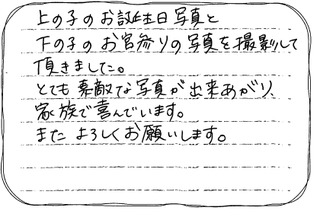 上の子のお誕生日写真と
下の子のお宮参りの写真を撮影して
頂きました。
とても素敵な写真が出来あがり、
家族で喜んでいます。
またよろしくお願いします。